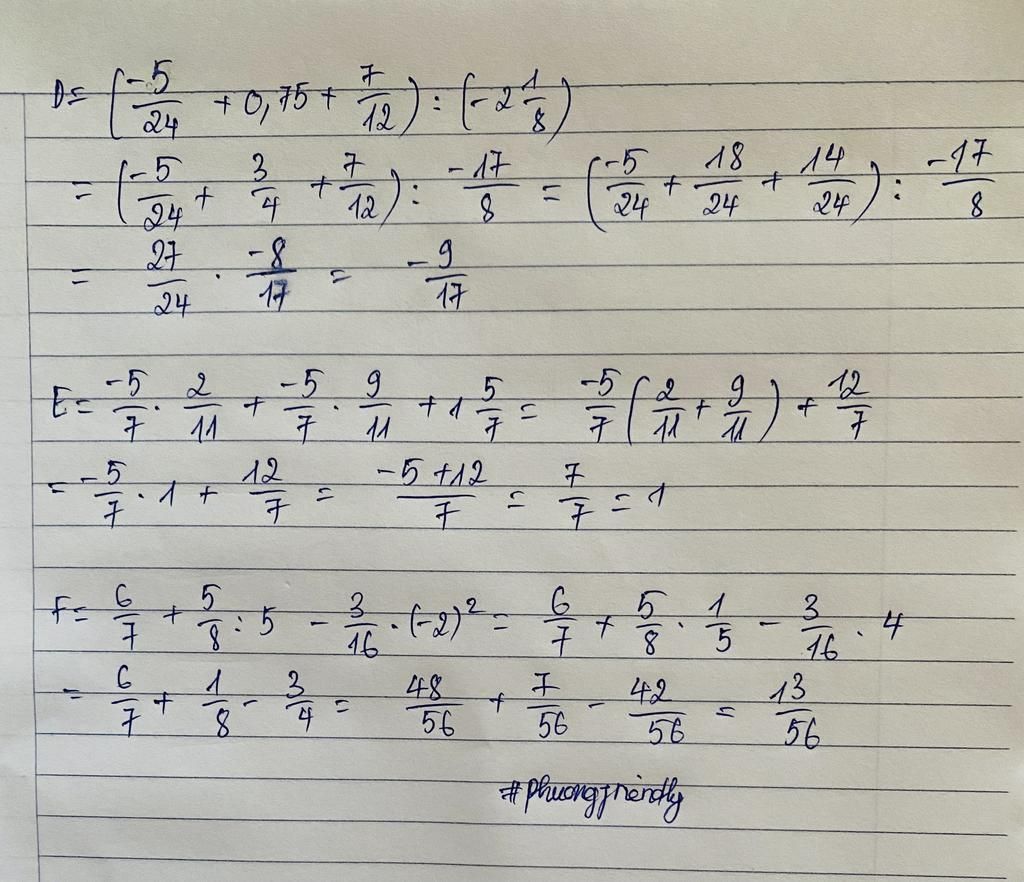 D = (-5/24 + 0,75 + 7/12) : (-2 1/8)
= (-5/24 + 3/4 + 7/12) : -17/8 = (-5/24 + 18/24 + 14/24) : -17/8
= 27/24 . -8/17 = -9/17
E = -5/7 . 2/11 + -5/7 . 9/11 + 1 5/7 = -5/7 (2/11 + 9/11) + 12/7
= -5/7 . 1 + 12/7 = -5+12/7 = 7/7 = 1
F = 6/7 + 5/8 : 5 - 3/16 . (-2)² = 6/7 + 5/8 . 1/5 - 3/16 . 4
= 6/7 + 1/8 - 3/4 = 48/56 + 7/56 - 42/56 = 13/56
#phuongfriendly